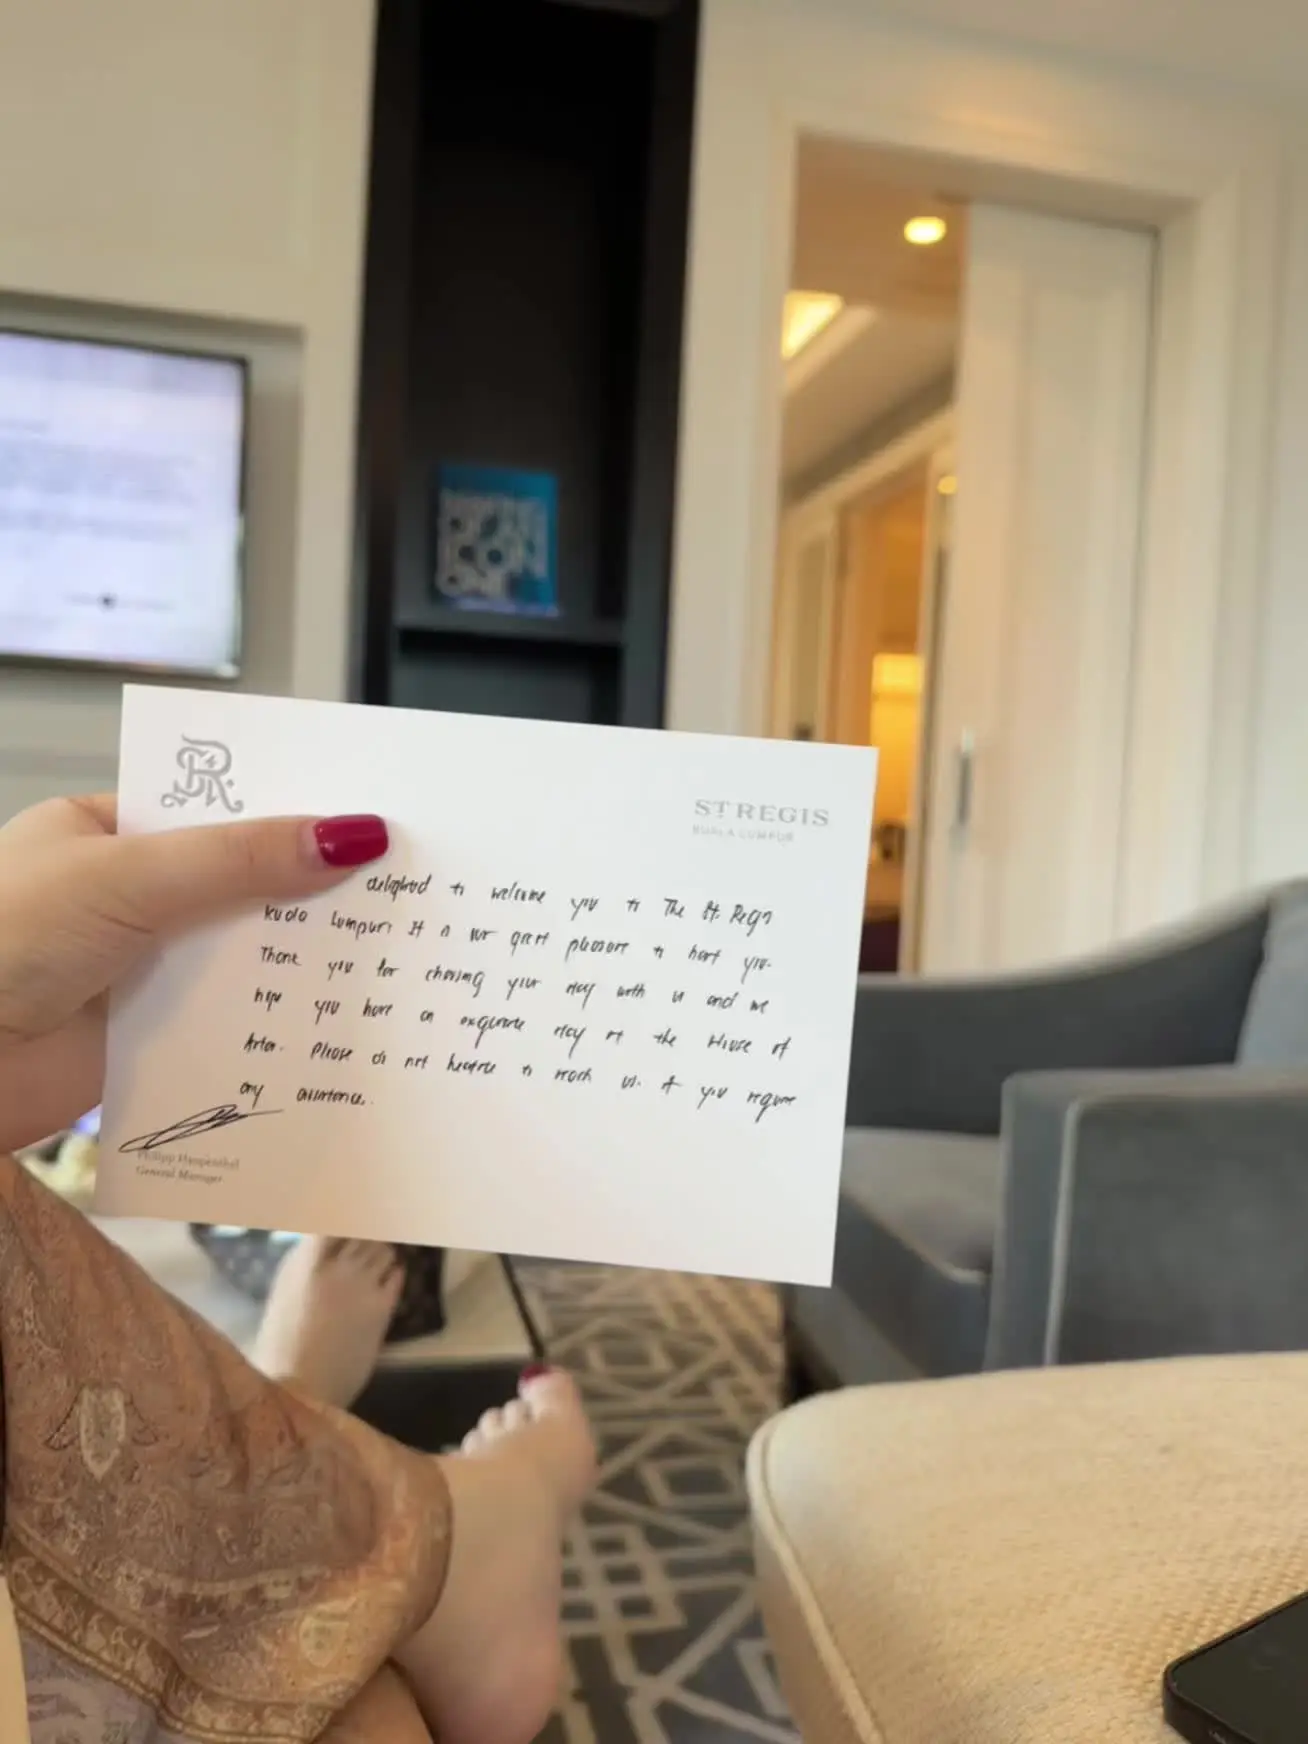 MAKING
OF AN
ICON
ONE
SR
ST REGIS
KUALA LUMPUR
delighted to welcome you to The St. Regis
Kuala Lumpur. It is our great pleasure to host you.
Thank you for choosing your stay with us and we
hope you have an exquisite stay at the House of
Astor. Please do not hesitate to reach us if you require
any assistance.
Philipp
General Manager